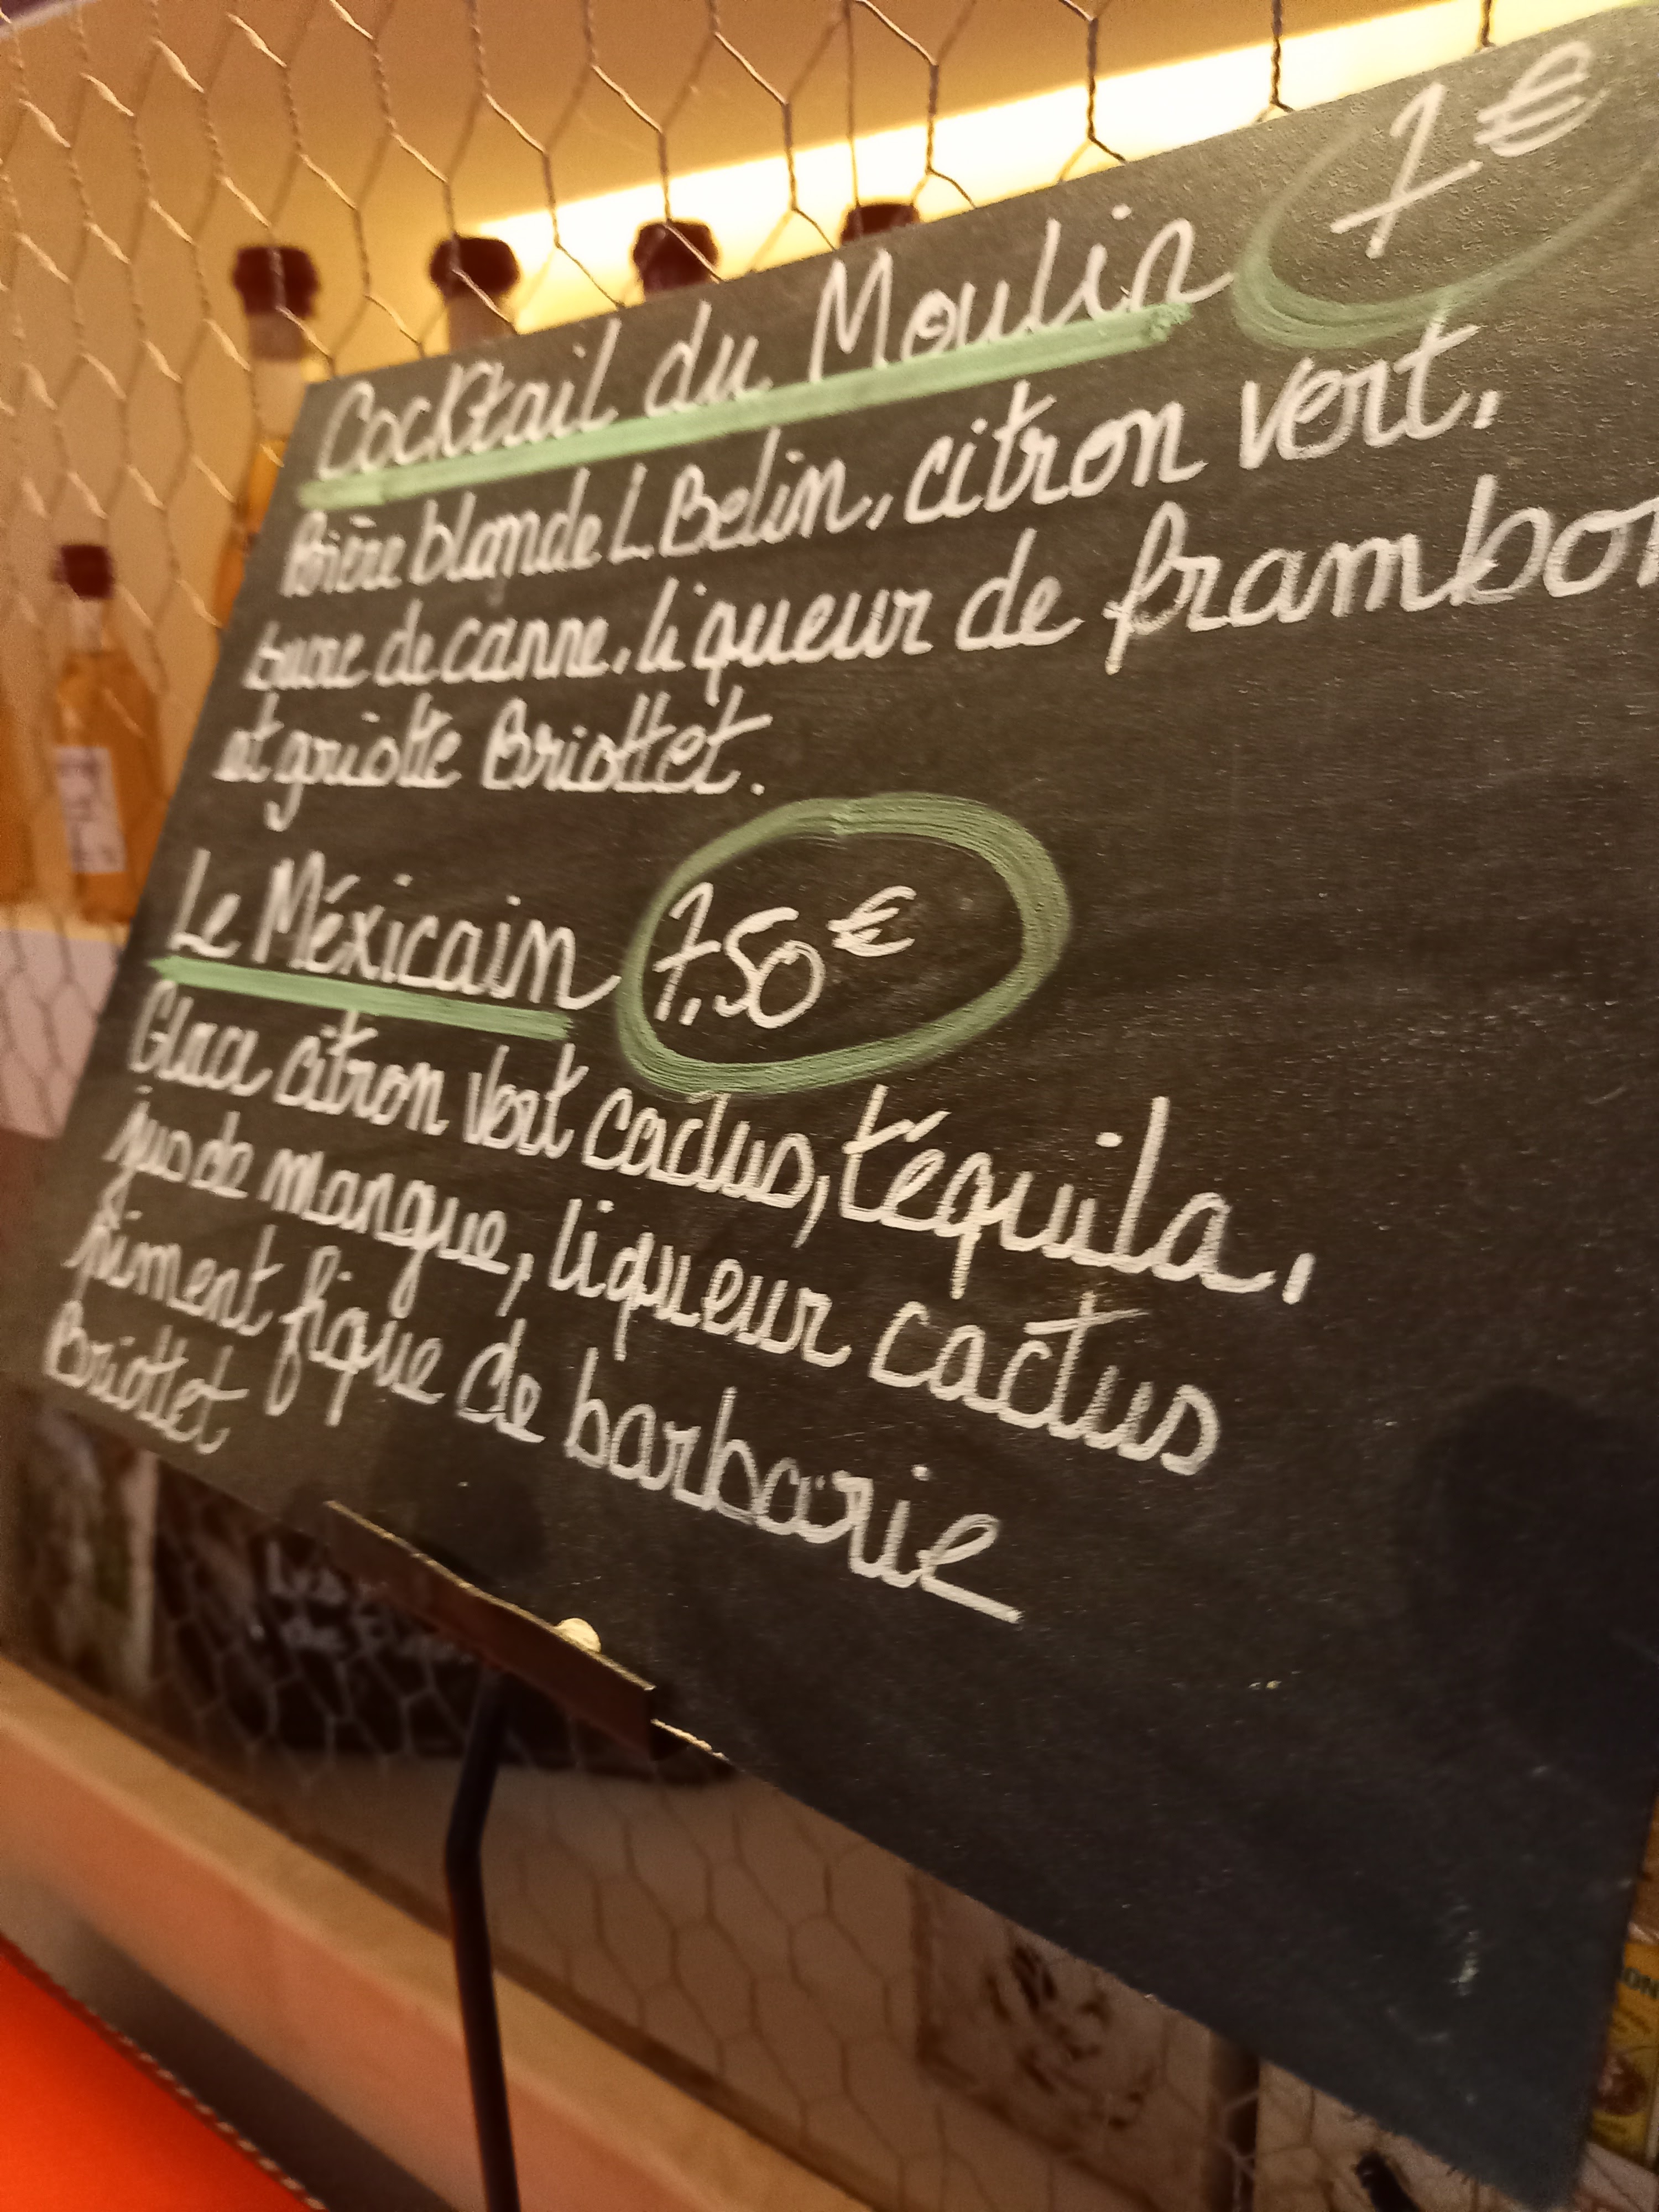 Cocktail du Moulin 7€
Bière blonde L. Belin, citron vert,
sucre de canne, liqueur de framboi
et griotte Briottet.
Le Méxicain 7,50€
Glace citron vert cactus, téquila,
jus de mangue, liqueur cactus
piment figue de barbarie
Briottet